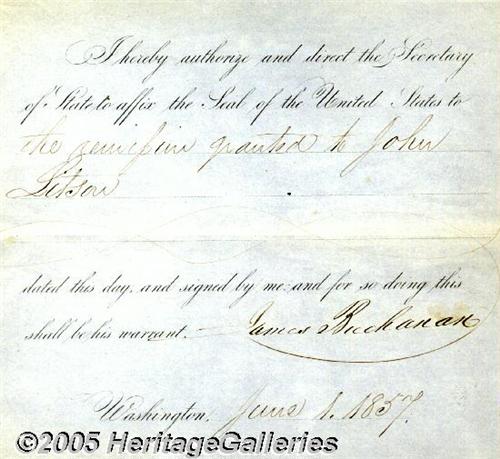 I hereby authorize and direct the Secretary
of State to affix the Seal of the United States to
the remission granted to John
Litson
dated this day, and signed by me: and for so doing this
shall be his warrant.
James Buchanan
Washington, June 1. 1857.
©2005 HeritageGalleries